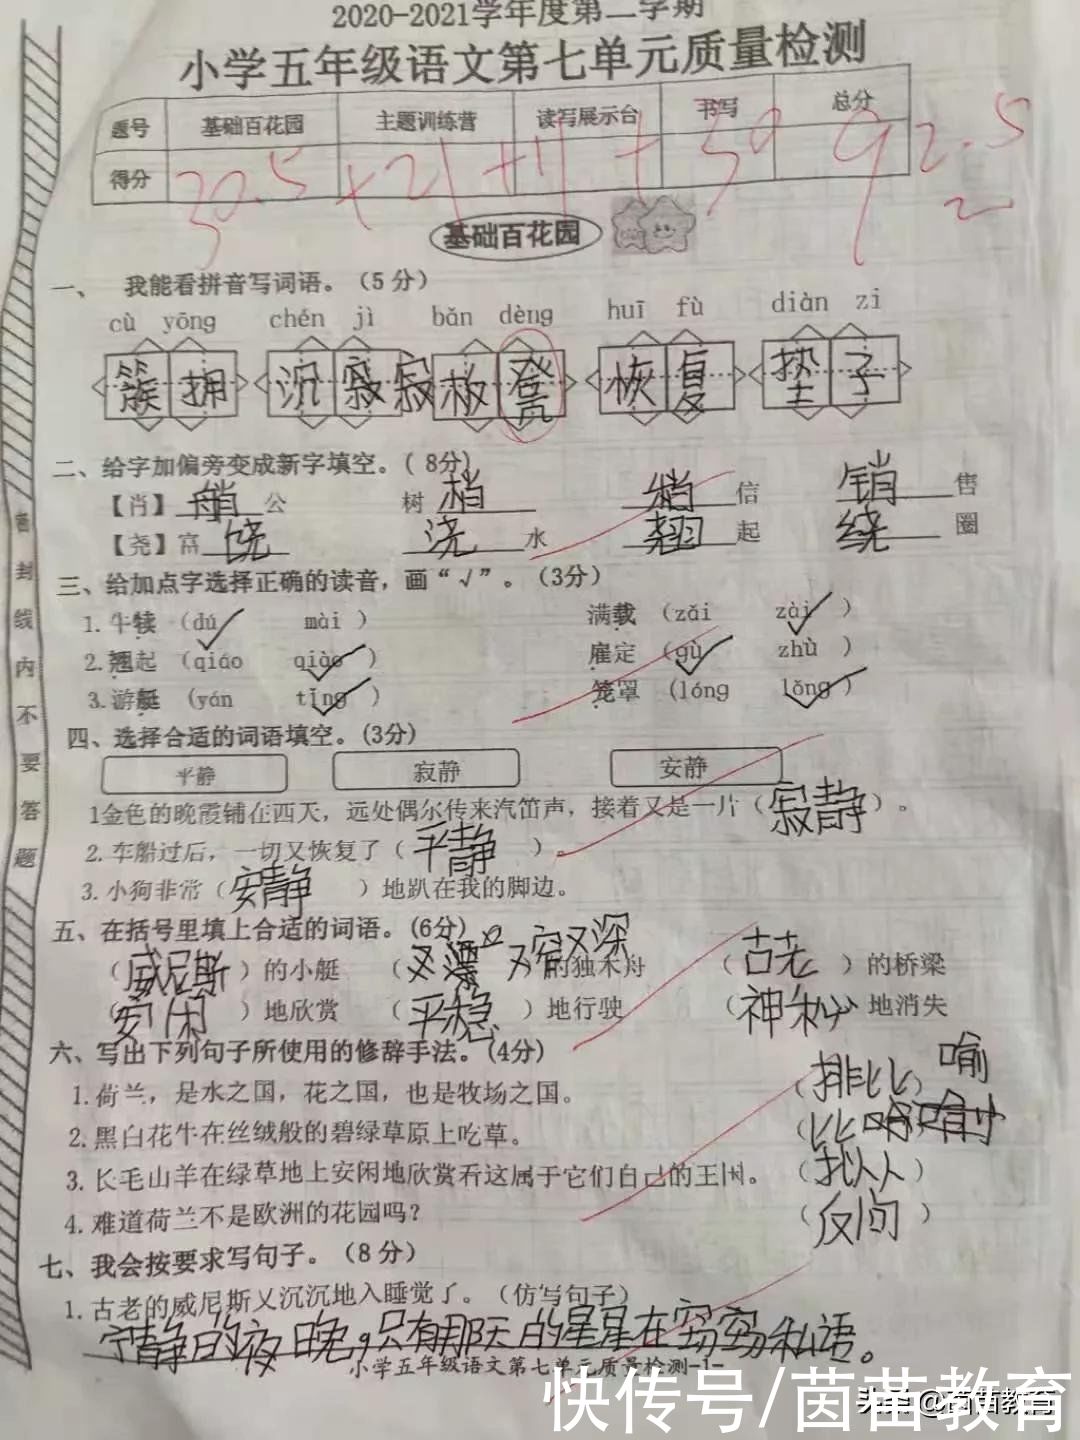 2020-2021学年度第二学期
小学五年级语文第七单元质量检测
题号 基础百花园 主题训练营 读写展示台 书写 总分
得分 30.5 +21 +11 + 92.5
基础百花园
一、 我能看拼音写词语。（5分）
cù yōng chén jì bǎn dèng huī fù diàn zi
簇拥 沉寂寂 板凳 恢复 垫子
二、给字加偏旁变成新字填空。( 8分)
【肖】艄公 树梢 信 销售
【尧】富饶 浇水 翘起 绕圈
三、给加点字选择正确的读音，画“√”。（3分）
1. 牛犊 （dú√ mài ） 满载 （zǎi zài√ ）
2. 翘起 （qiáo qiào√ ） 雇定 （gù√ zhù ）
3. 游艇 （yán tǐng√ ） 笼罩 （lóng lǒng√ ）
四、选择合适的词语填空。(3分)
平静 寂静 安静
1金色的晚霞铺在西天，远处偶尔传来汽笛声，接着又是一片（寂静）。
2. 车船过后，一切又恢复了（平静 ）。
3. 小狗非常（安静 ）地趴在我的脚边。
五、在括号里填上合适的词语。(6分)
（威尼斯 ）的小艇 （ 又窄又深）的独木舟 （古老 ）的桥梁
（安闲 ）地欣赏 （平稳 ）地行驶 （神秘）地消失
六、写出下列句子所使用的修辞手法。(4分)
1. 荷兰，是水之国，花之国，也是牧场之国。 （排比）
2. 黑白花牛在丝绒般的碧绿草原上吃草。 （比喻
3. 长毛山羊在绿草地上安闲地欣赏着这属于它们自己的王国。 （拟人）
4. 难道荷兰不是欧洲的花园吗？ （反问 ）
七、我会按要求写句子。（8分）
1. 古老的威尼斯又沉沉地入睡觉了。（仿写句子）
宁静的夜晚，只有那天的星星在窃窃私语。
小学五年级语文第七单元质量检测-1-
密封线内不要答题
快传号/茵苗教育
头条 @茵苗教育